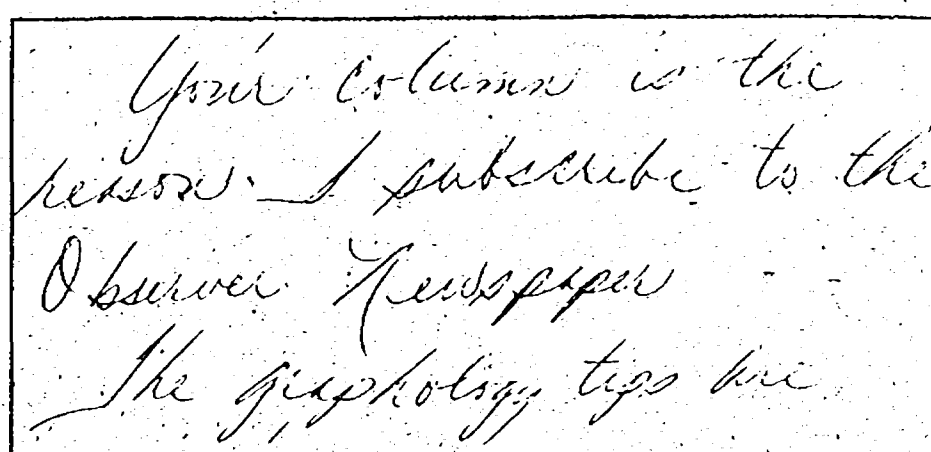 Your column is the
reason I subscribe to the
Observer Newspaper
The graphology tips are